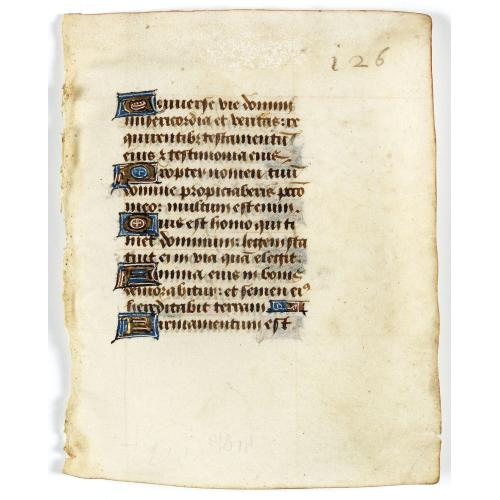 i 26
Universe vie domini
misericordia et veritas: re
quirentibz testamentū
eius & testimonia eius.
Propter nomen tuū
domine propiciaberis pctō
meo: multum est enim.
Quis est homo qui ti
met dominum: legem sta
tuit ei in via quā elegit.
Anima eius in bonis
demorabitur: et semen ei⁹
hereditabit terram
Firmamentum est